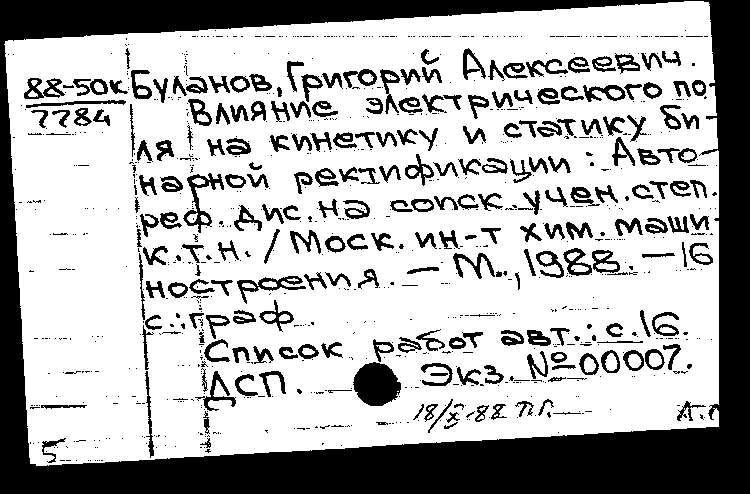 88-50к Буланов, Григорий Алексеевич.
7784 Влияние электрического по-
ля на кинетику и статику би-
нарной ректификации : Авто-
реф. дис. на соиск. учен. степ.
к.т.н. / Моск. ин-т хим. маши-
ностроения. — М., 1988. — 16
с.: граф.
Список работ авт.: с. 16.
ДСП. Экз. № 00007.
18/X-88 п.г.
5